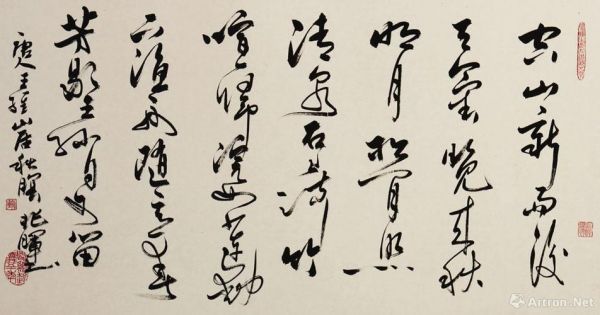 空山新雨後
天氣晚来秋
明月松間照
清泉石上流竹
喧歸浣女蓮動
下漁舟随意春
芳歇王孫自可留
唐人王維山居秋暝
Artron.Net